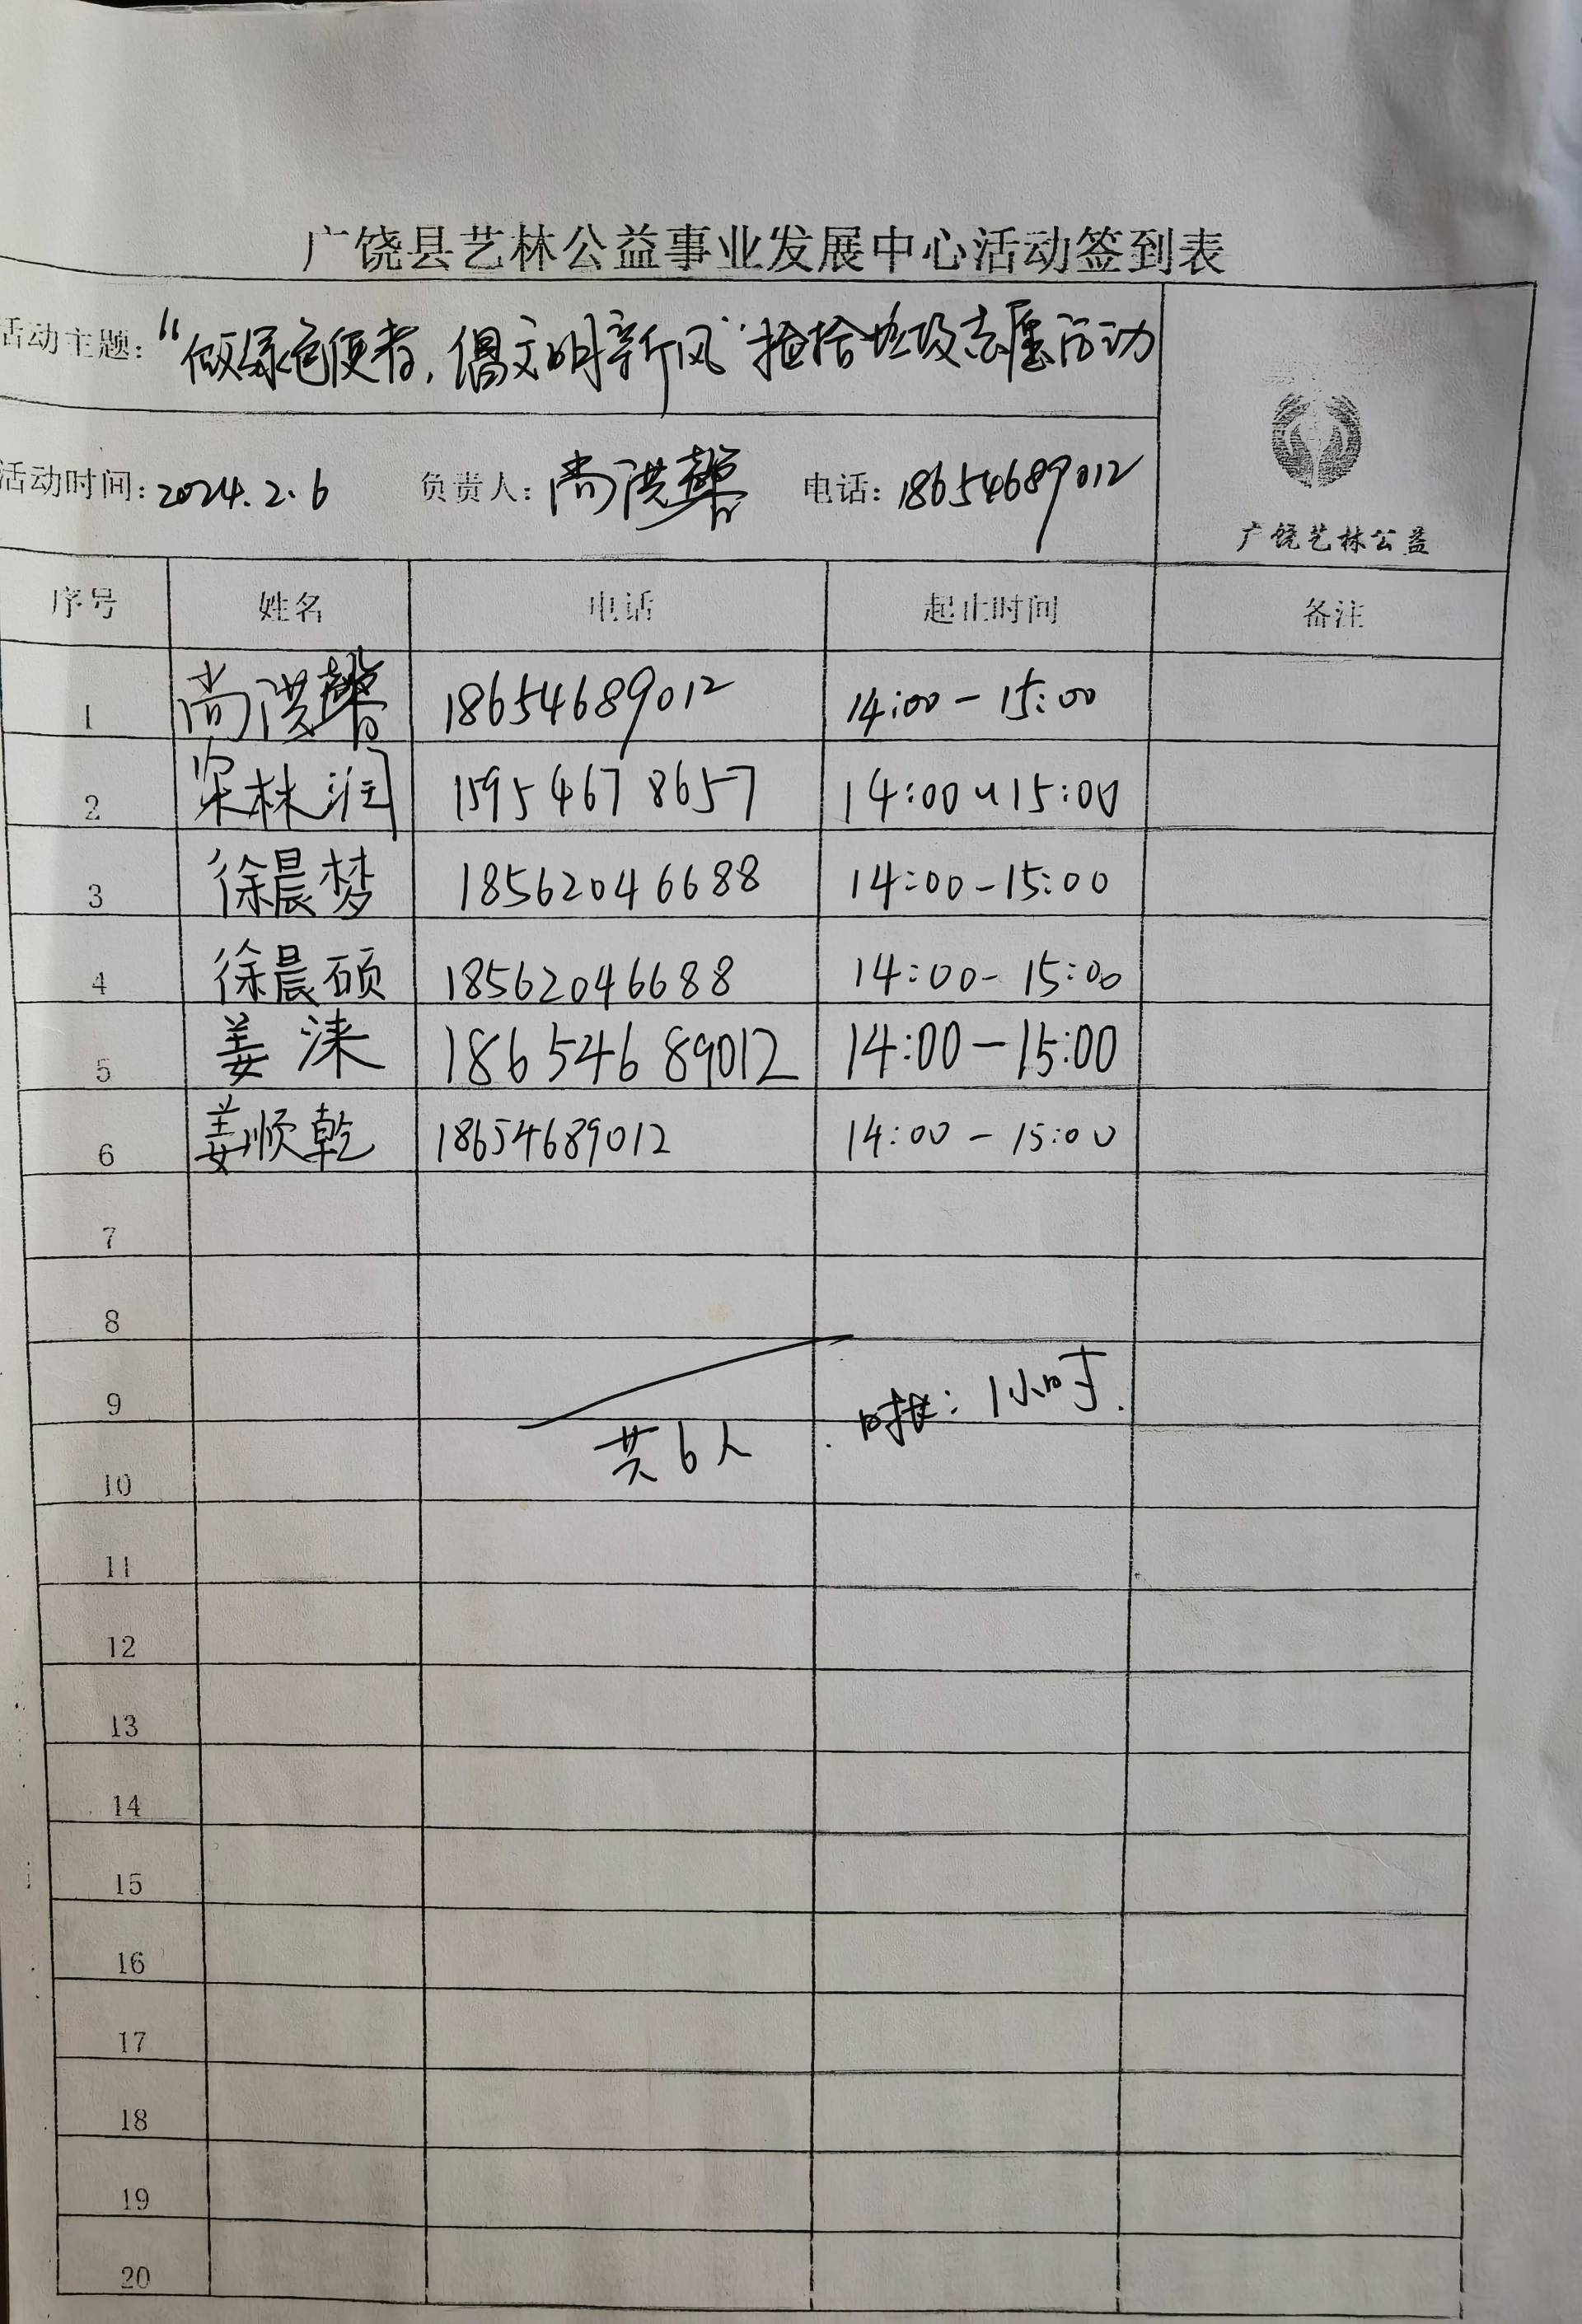 广饶县艺林公益事业发展中心活动签到表
活动主题：“做绿色使者，倡文明新风”捡拾垃圾志愿活动
活动时间：2024.2.6 负责人：尚洪馨 电话：18654689012
广饶艺林公益
序号 姓名 电话 起止时间 备注
1 尚洪馨 18654689012 14:00-15:00
2 林润 15954678657 14:00-15:00
3 徐晨梦 18562046688 14:00-15:00
4 徐晨硕 18562046688 14:00-15:00
5 姜涞 18654689012 14:00-15:00
6 姜顺乾 18654689012 14:00-15:00
7
8
9 时长：1小时.
10 共6人
11
12
13
14
15
16
17
18
19
20